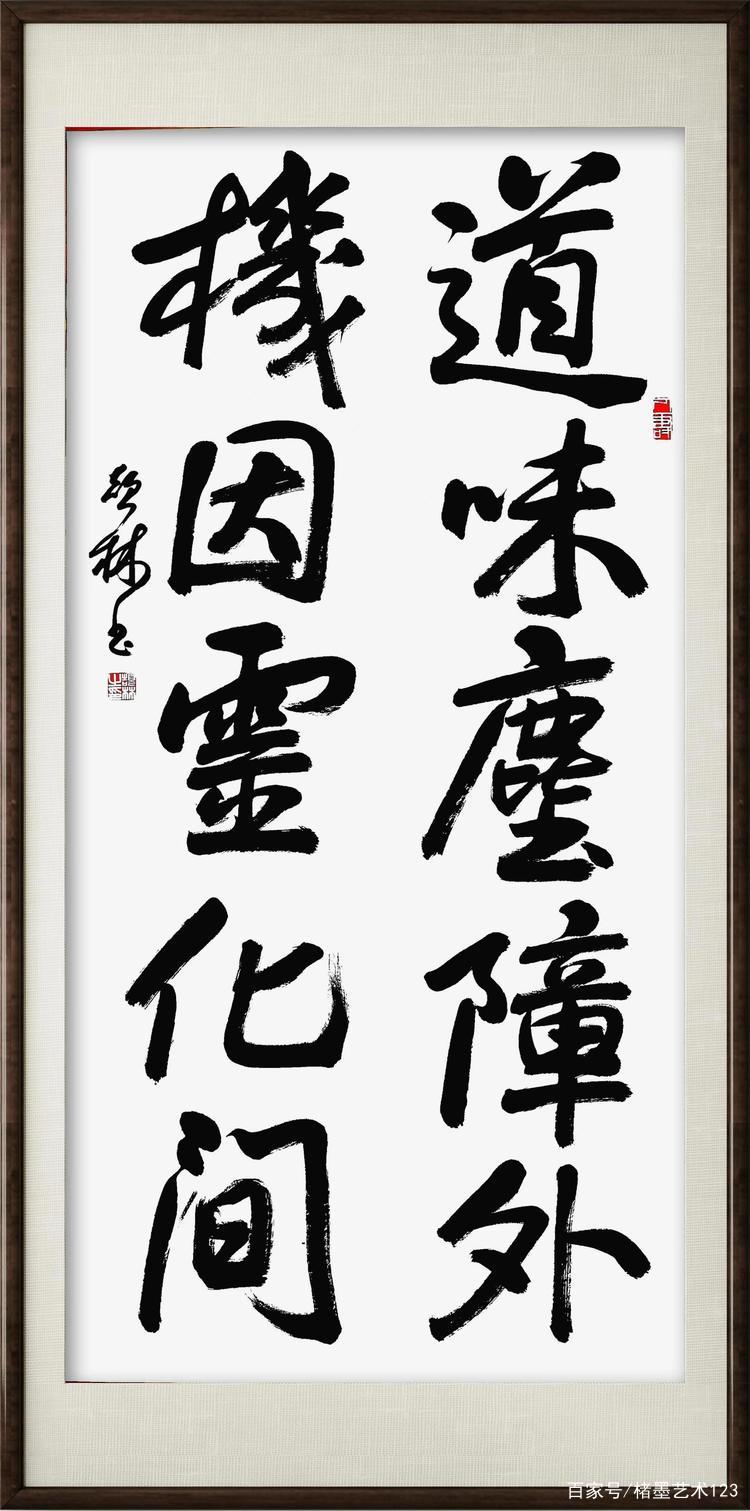 道味塵障外
機因靈化间
林书
百家号/楮墨艺术123